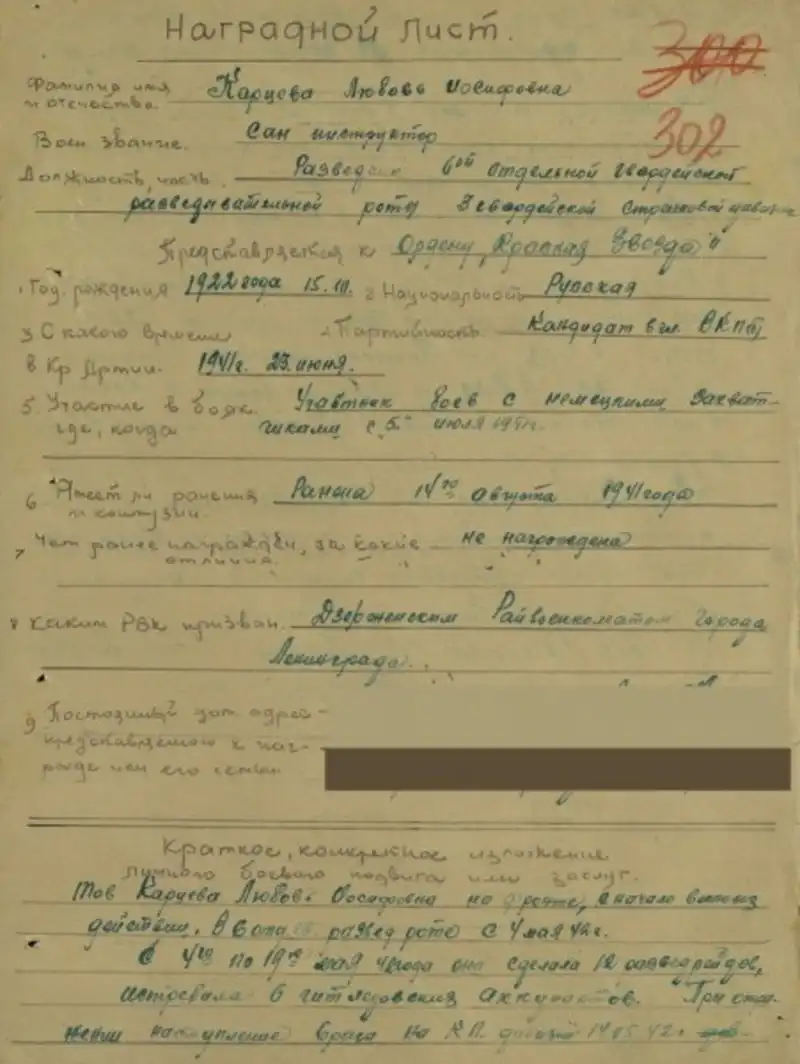 Наградной лист.
300
302
Фамилия имя Карцева Любовь Иосифовна
и отчество.
Воен звание. Сан инструктор
Должность, часть. 6ой отдельной гвардейской
разведывательной роты 3 гвардейской стрелковой
Представляется к Ордену "Красная Звезда"
1 Год. рождения 1922 года 15. III. 2 Национальность Русская
3 С какого времени Партийность Кандидат в чл. ВКПб
в Кр Армии. 1941г. 23. июня.
5. Участие в боях Участник боев с немецкими захват-
где, когда чиками с 5. июля 1941.
6 Имеет ли ранения Ранена 14го августа 1941 года
и контузии.
7, Чем ранее награжден, за какие не награждена
отличия.
8 Каким РВК призван. Дзержинским Райвоенкоматом города
Ленинграда.
9 Постоянный адрес
представляемого к наг-
раде или его семьи
Краткое, конкретное изложение
личного боевого подвига или заслуг.
Тов Карцева Любовь Иосифовна на фронте, с начало
действий. В развед роте с 4 мая 42г.
С 4го по 19ое мая 42 года она сделала 12
истребила 6 гитлеровских При отра-
жении наступление врага на К.П. 14.05.42г.